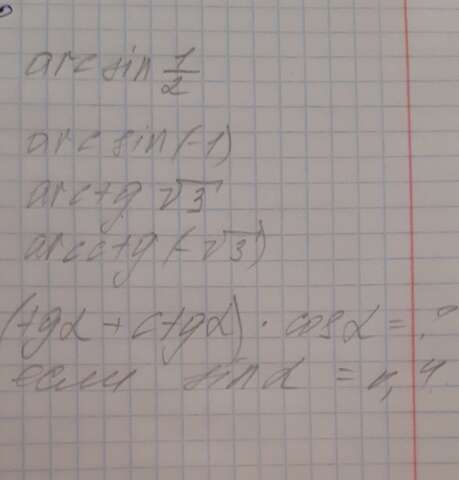 arcsin 1/2
arcsin(-1)
arctg √3
arcctg(-√3)
(tgα + ctgα) · cosα = ?
если sinα = 0,4